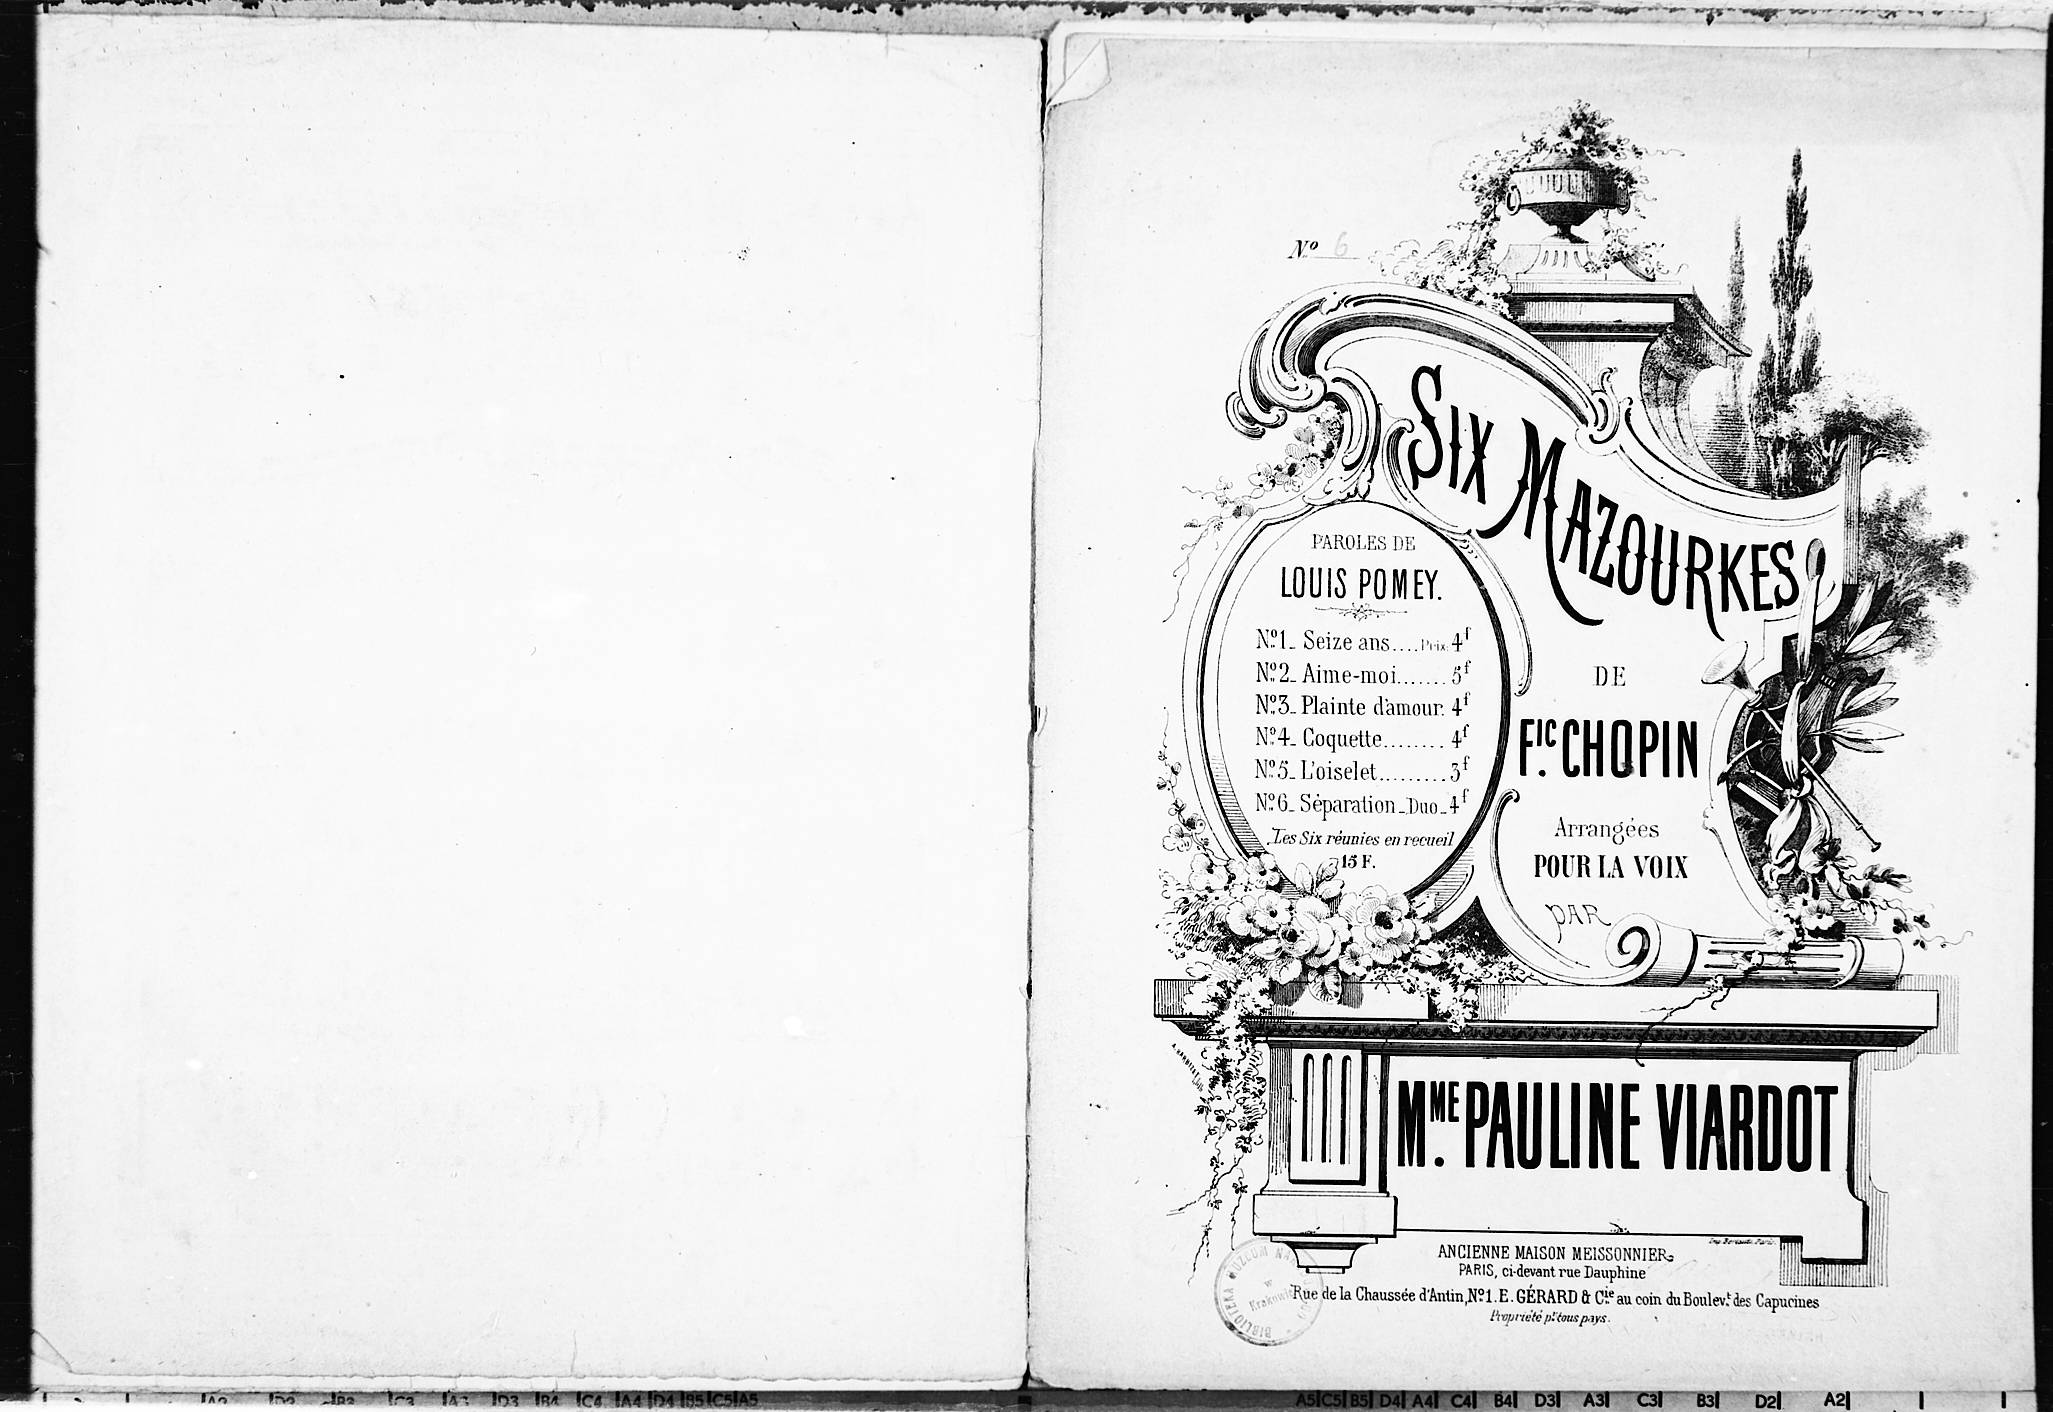 Nº 6
SIX MAZOURKES
PAROLES DE
LOUIS POMEY.
Nº1_ Seize ans.... Prix: 4f
Nº2_ Aime-moi....... 5f
Nº3_ Plainte d'amour. 4f
Nº4_ Coquette........ 4f
Nº5_ L'oiselet......... 3f
Nº6_ Séparation_Duo_4f
Les Six réunies en recueil
15 F.
DE
FIC. CHOPIN
Arrangées
POUR LA VOIX
PAR
MME. PAULINE VIARDOT
ANCIENNE MAISON MEISSONNIER
PARIS, ci-devant rue Dauphine
Rue de la Chaussée d'Antin, Nº1. E. GÉRARD & Cie au coin du Boulevt. des Capucines
Propriété pr. tous pays.
BIBLIOTEKA MUZEUM
w
Krakowie
A2 D2 B2 C3 A3 D3 B4 C4 A4 D4 B5 C5 A5
A5 C5 B5 D4 A4 C4 B4 D3 A3 C3 B3 D2 A2